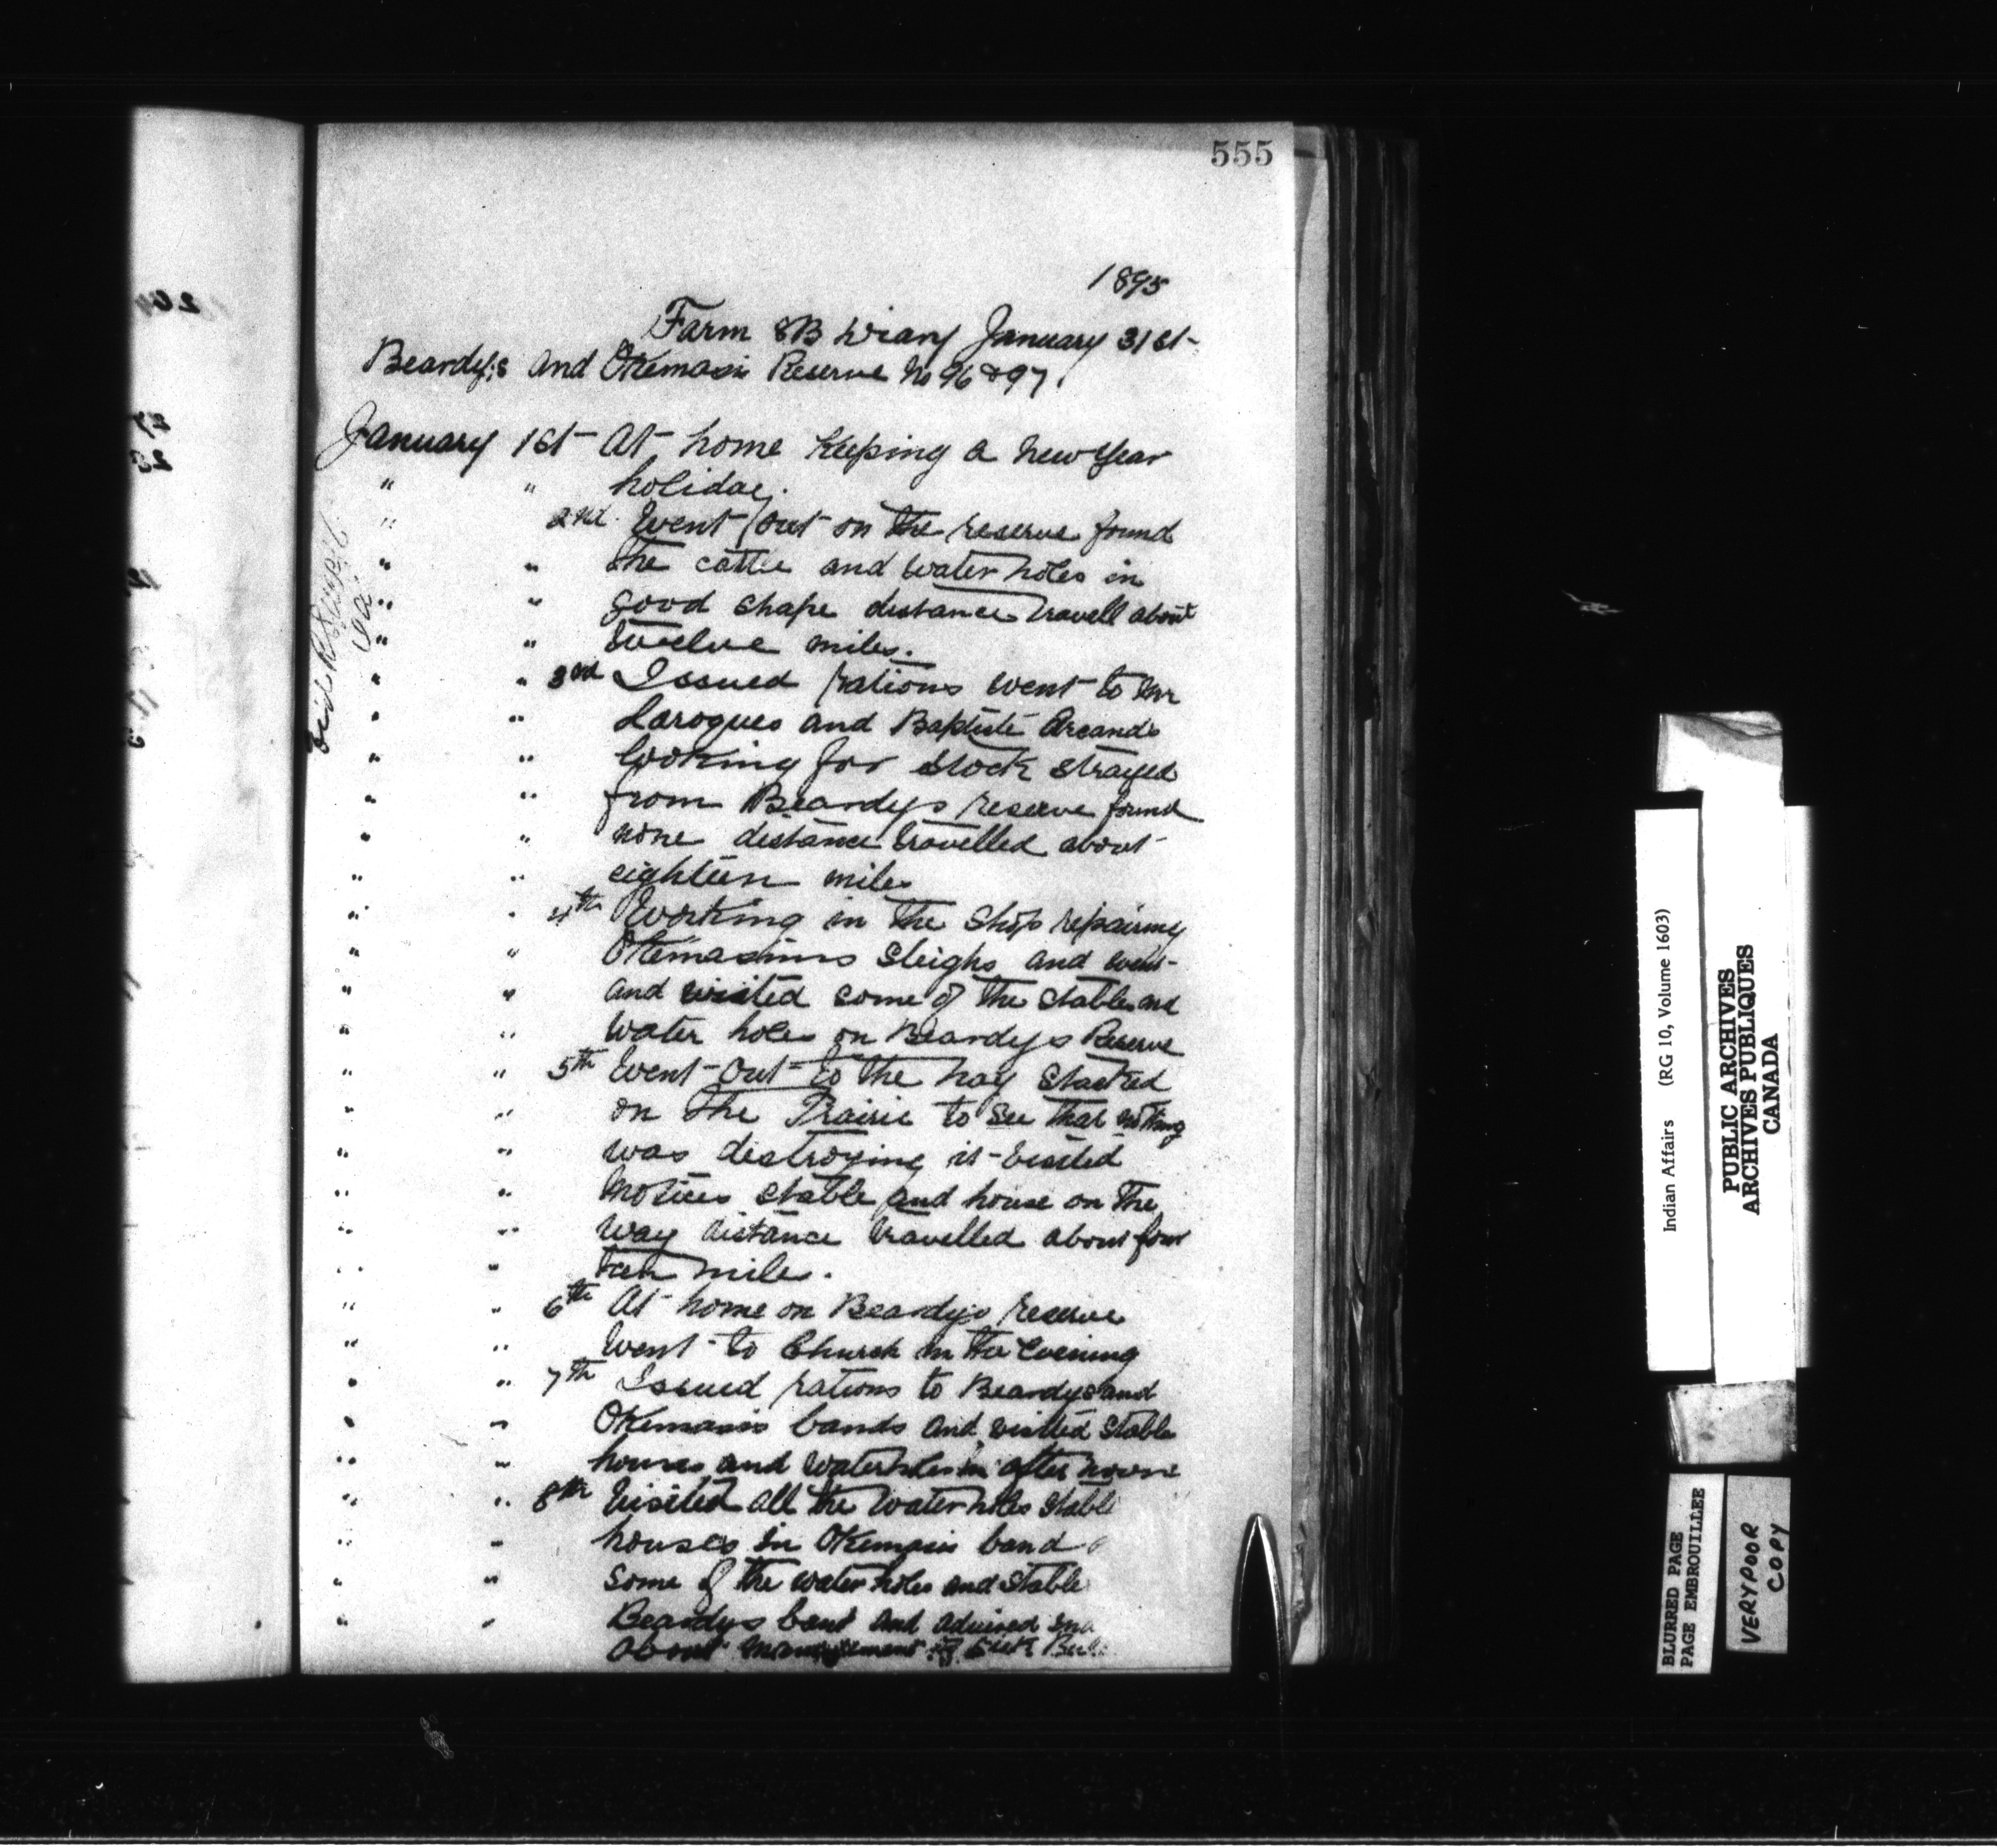 555
1895
Farm 8B Diary January 31st
Beardy's and Okemasis Reserve No 96 & 97.
January 1st At home keeping a New Year
" " holiday.
" 2nd Went out on the reserve found
" " the cattle and water holes in
" " good shape distance travell about
" " twelve miles.
" " 3rd Issued rations went to Mr
" " Laroques and Baptiste Arcands
" " looking for stock strayed
" " from Beardys reserve found
" " none distance travelled about
" " eighteen miles
" " 4th Working in the shop repairing
" " sleighs and went
" " and visited some of the stables and
" " water holes on Beardys Reserve
" " 5th Went out to the hay stacked
" " on the Prairie to see that nothing
" " was destroying it visited
" " stable and house on the
" " way distance travelled about four
" " teen miles.
" " 6th At home on Beardys reserve
" " Went to Church in the Evening
" " 7th Issued rations to Beardys and
" " Okemasis bands and visited stable
" " houses and waterholes in after noon
" " 8th Visited all the water holes stabl
" " houses in Okemasis band
" " some of the water holes and stable
" " Beardys band and advised
about management of
Indian Affairs (RG 10, Volume 1603)
PUBLIC ARCHIVES
ARCHIVES PUBLIQUES
CANADA
BLURRED PAGE
PAGE EMBROUILLEE
VERY POOR
COPY